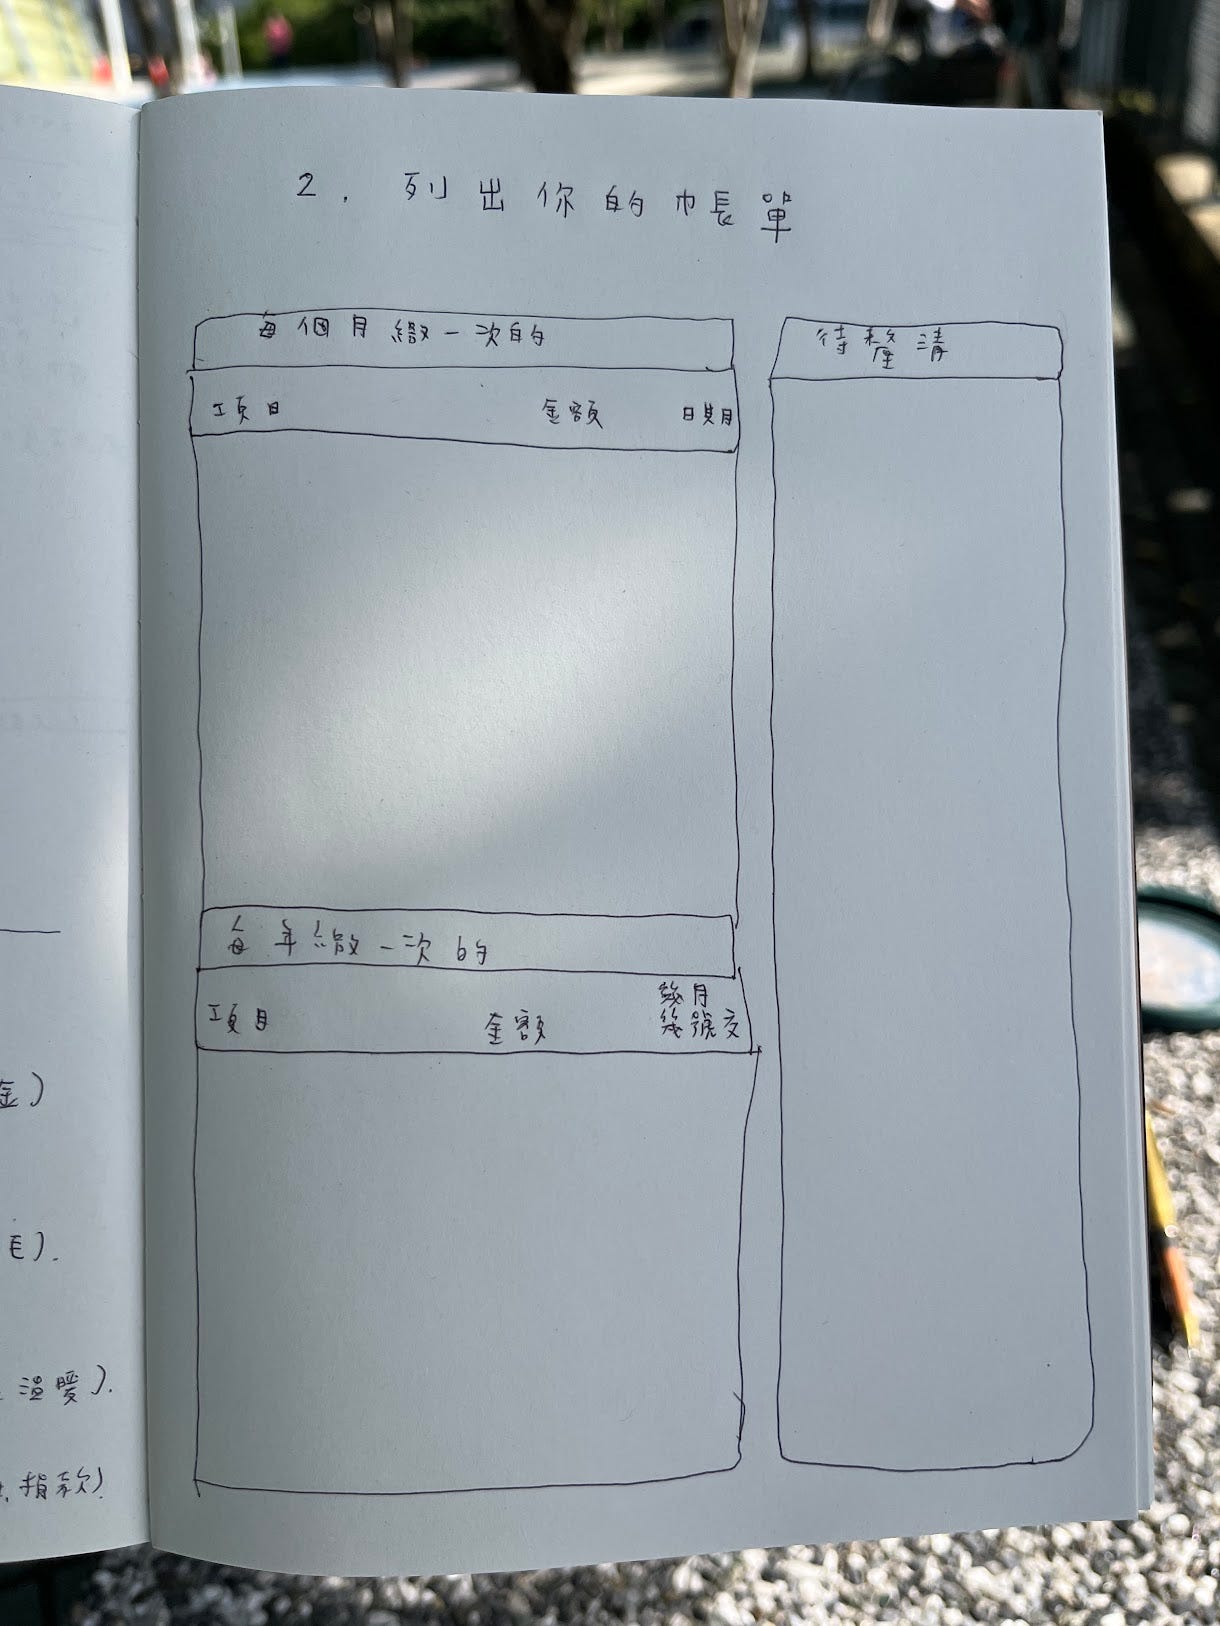 金)
毛).
溫暖).
捐款)
2. 列出你的帳單
每個月繳一次的
項目 金額 日期
每年繳一次的
項目 金額 幾月
幾號交
待釐清